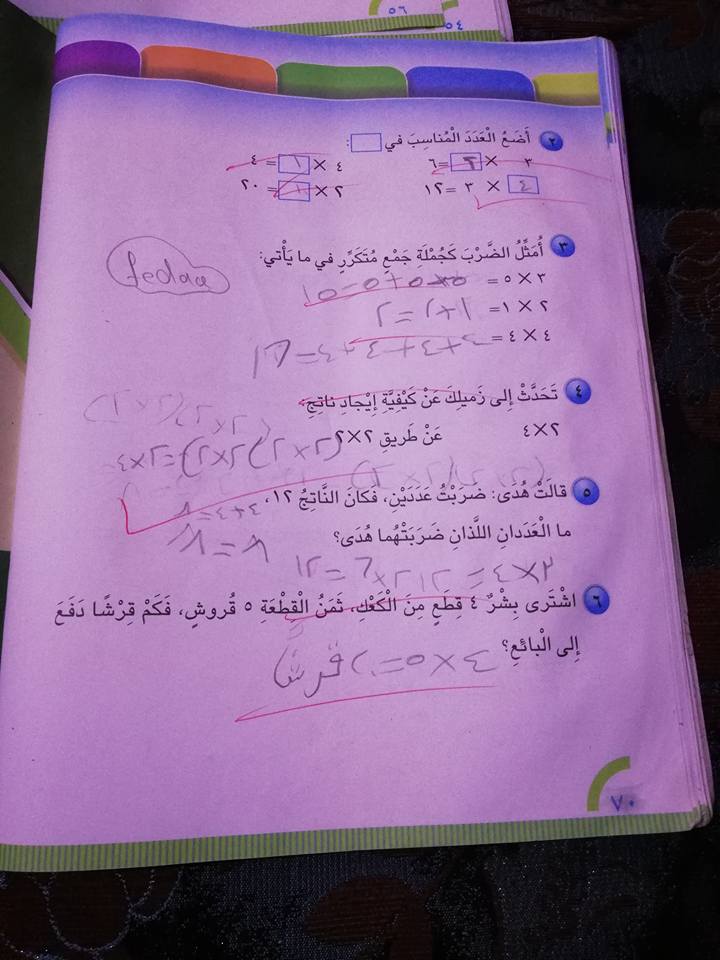 ٥٦
٥٤
٢ أَضَعُ الْعَدَدَ الْمُناسِبَ في :
٣ × ٢ =٦
٤ × ١ = ٤
٤ × ٣ =١٢
٢ × = ٢٠
fedaa
٣ أُمَثِّلُ الضَّرْبَ كَجُمْلَةِ جَمْعٍ مُتَكَرِّرٍ في ما يَأْتي:
٣ × ٥ = ٥+٥+٥=١٥
٢ × ١ = ١+١=٢
٤ × ٤ = ٤+٤+٤+٤=١٦
٤ تَحَدَّثْ إِلى زَميلِكَ عَنْ كَيْفِيَّةِ إيْجادِ ناتِجِ:
٢×٤ عَنْ طَريقِ ٢×٢
(٢×٢)(٢×٢)=٢×٤
٥ قالَتْ هُدَى: ضَرَبْتُ عَدَدَيْنِ، فَكانَ النَّاتِجُ ١٢،
٤+٤=٨
ما الْعَدَدانِ اللَّذانِ ضَرَبَتْهُما هُدَى؟
٨=٨
٦ اشْتَرى بِشْرٌ ٤ قِطَعٍ مِنَ الْكَعْكِ، ثَمَنُ الْقِطْعَةِ ٥ قُروشٍ، فَكَمْ قِرْشًا دَفَعَ
إِلى الْبائِعِ؟
٤×٥=٢٠ قرش
٧٠